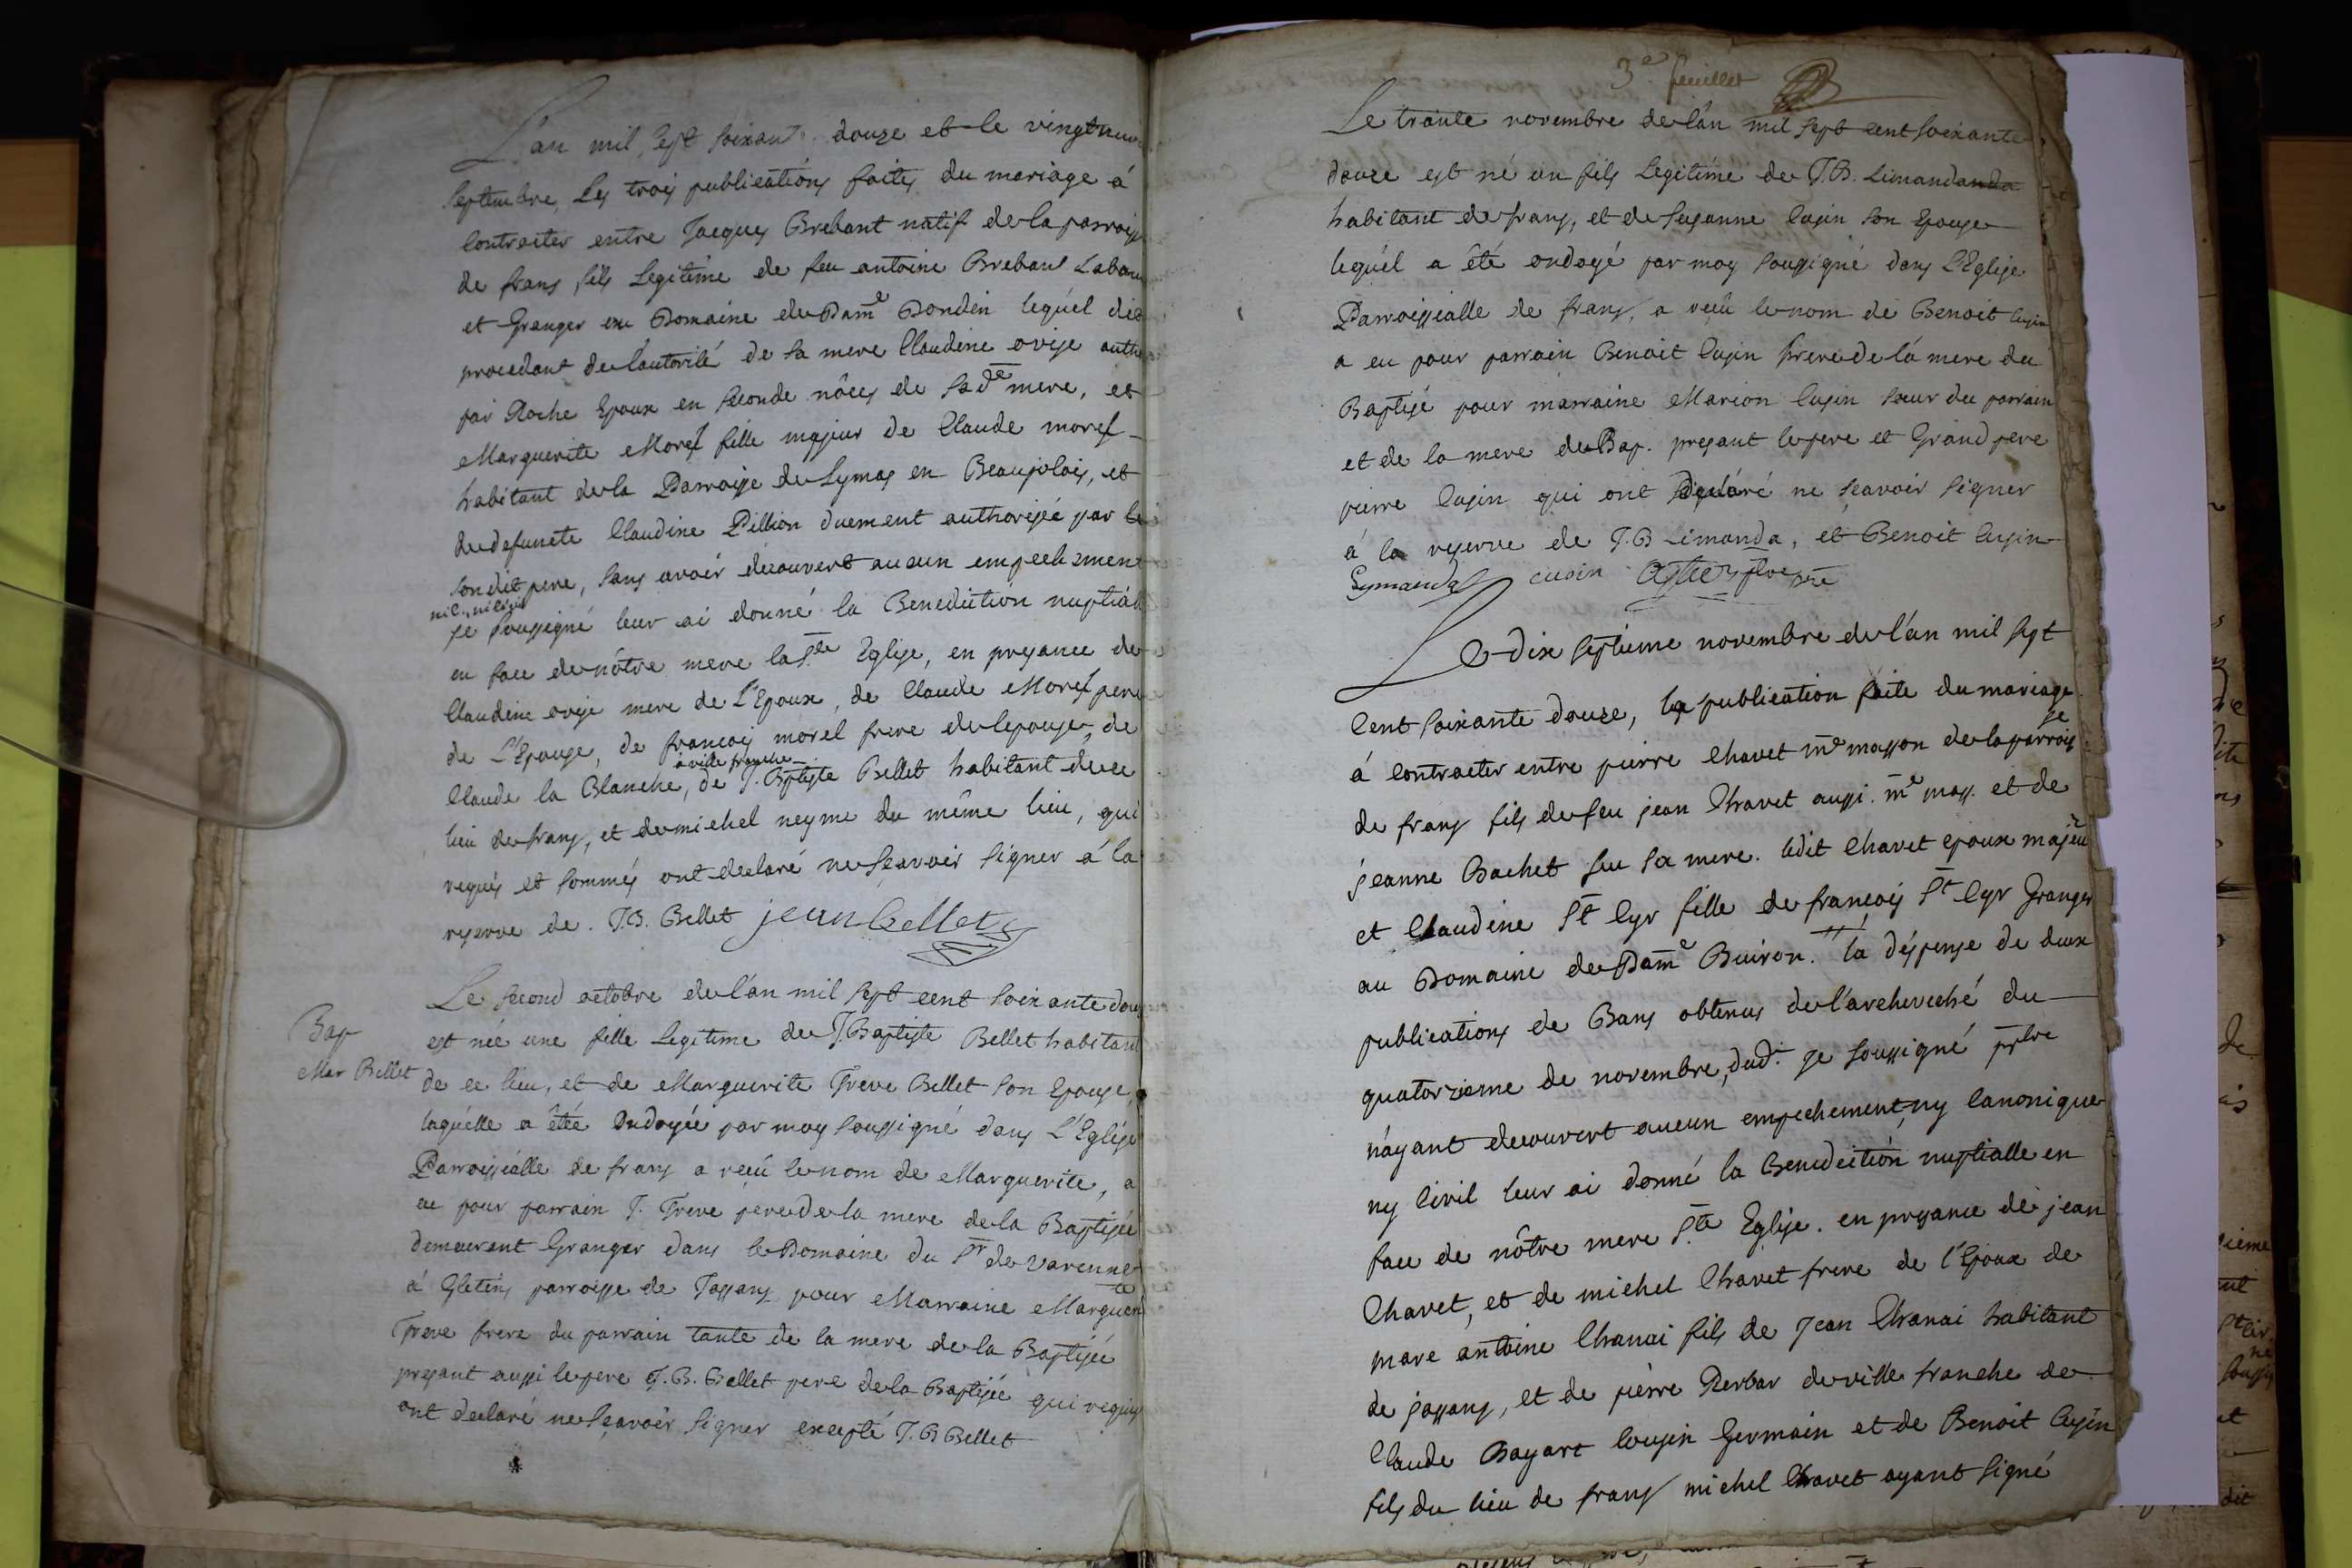 L'an mil sept soixante douze et le vingt
septembre, Les trois publications faites du mariage á
Contracter entre Jacques Brebant natif de la parroisse
de frans fils Legitime de feu antoine Brebant Labou
et Granger au Domaine de Dame Dondin lequel dit
procedant de l'autorité de sa mere Claudine ovise auth
par Roche Epoux en seconde nôces de sa de mere, et
Marguerite Morel fille majeur de Claude morel
habitant de la Parroisse de Lymas en Beaujolois, et
de defuncte Claudine Pillion duement authorisée par le
son dit pere, sans avoir decouvert aucun empechement
ni c. ni civil
je soussigné leur ai donné la Benediction nuptiale
en face de nôtre mere la Ste Eglise, en presance de
Claudine ovise mere de L'Epoux, de Claude Morel pere
de L'Epouse, de francois morel frere de lepouse, de
à ville franche
Claude la Blanche, de J. Bptiste Bellet habitant de ce
lieu de frans, et de michel neyme du même lieu, qui
requis et sommés ont declaré ne sçavoir signer á la
reserve de. J.B. Bellet jean bellet
Le second octobre de l'an mil sept cent soixante douze
Bap
est née une fille legitime de J. Baptiste Bellet habitant
Mar Bellet
de ce lieu, et de Marguerite Treve Bellet son Epouse,
laquélle a étée Ondoyée par moy soussigné dans L'Eglise
Parroissialle de frans a recû le nom de Marguerite, a
eu pour parrain J. Treve pere de la mere de la Baptisée
demeurant Granger dans le Domaine du Sr de Varenne
á Gletins parroisse de Jassans pour Marraine Margueritte
Treve frere du parrain tante de la mere de la Baptisée
presant aussi le pere J.B. Bellet pere de la Baptisée qui requis
ont declaré ne sçavoir signer excepté J.B Bellet
3e feuillet
Le trante novembre de l'an mil sept cent soixante
douze est né un fils Legitime de J.B. Limandanda
habitant de frans, et de susanne Cusin son Epouse
lequél a été ondoyé par moy soussigné dans L'Eglise
Parroissialle de frans, a recû le nom de Benoit Cusin
a eu pour parrain Benoit Cusin frere de lá mere du
Baptisé pour marraine Marion Cusin sœur du parrain
et de la mere du Bap. presant le pere et Grand pere
pierre Cusin qui ont déclaré ne sçavoir signer
á la reserve de J.B Limanda, et Benoit Cusin
Lymanda cusin
Le dix septieme novembre de l'an mil sept
Cent soixante douze, la publication faite du mariage
á Contracter entre pierre Chavet me masson de la parroisse
de frans fils de feu jean Chavet aussi. me mass. et de
jeanne Bachet feu sa mere. ledit Chavet epoux majeur
et Claudine St Cyr fille de françois St Cyr Granger
au Domaine de Dame Buiron. la déspense de deux
publications de Bans obtenus de l'archeveché du
quatorzieme de novembre, dud. je soussigné ptre
n'ayant decouvert aucun empechement, ny Canonique
ny Civil leur ai donné la Benediction nuptialle en
face de nôtre mere Ste Eglise. en presance de jean
Chavet, et de michel Chavet frere de l'Epoux de
marc antoine Chanai fils de Jean Chanai habitant
de jassans, et de pierre Perbar de ville franche de
Claude Bayart Cousin Germain et de Benoit Cusin
fils du lieu de frans michel Chavet ayant signé